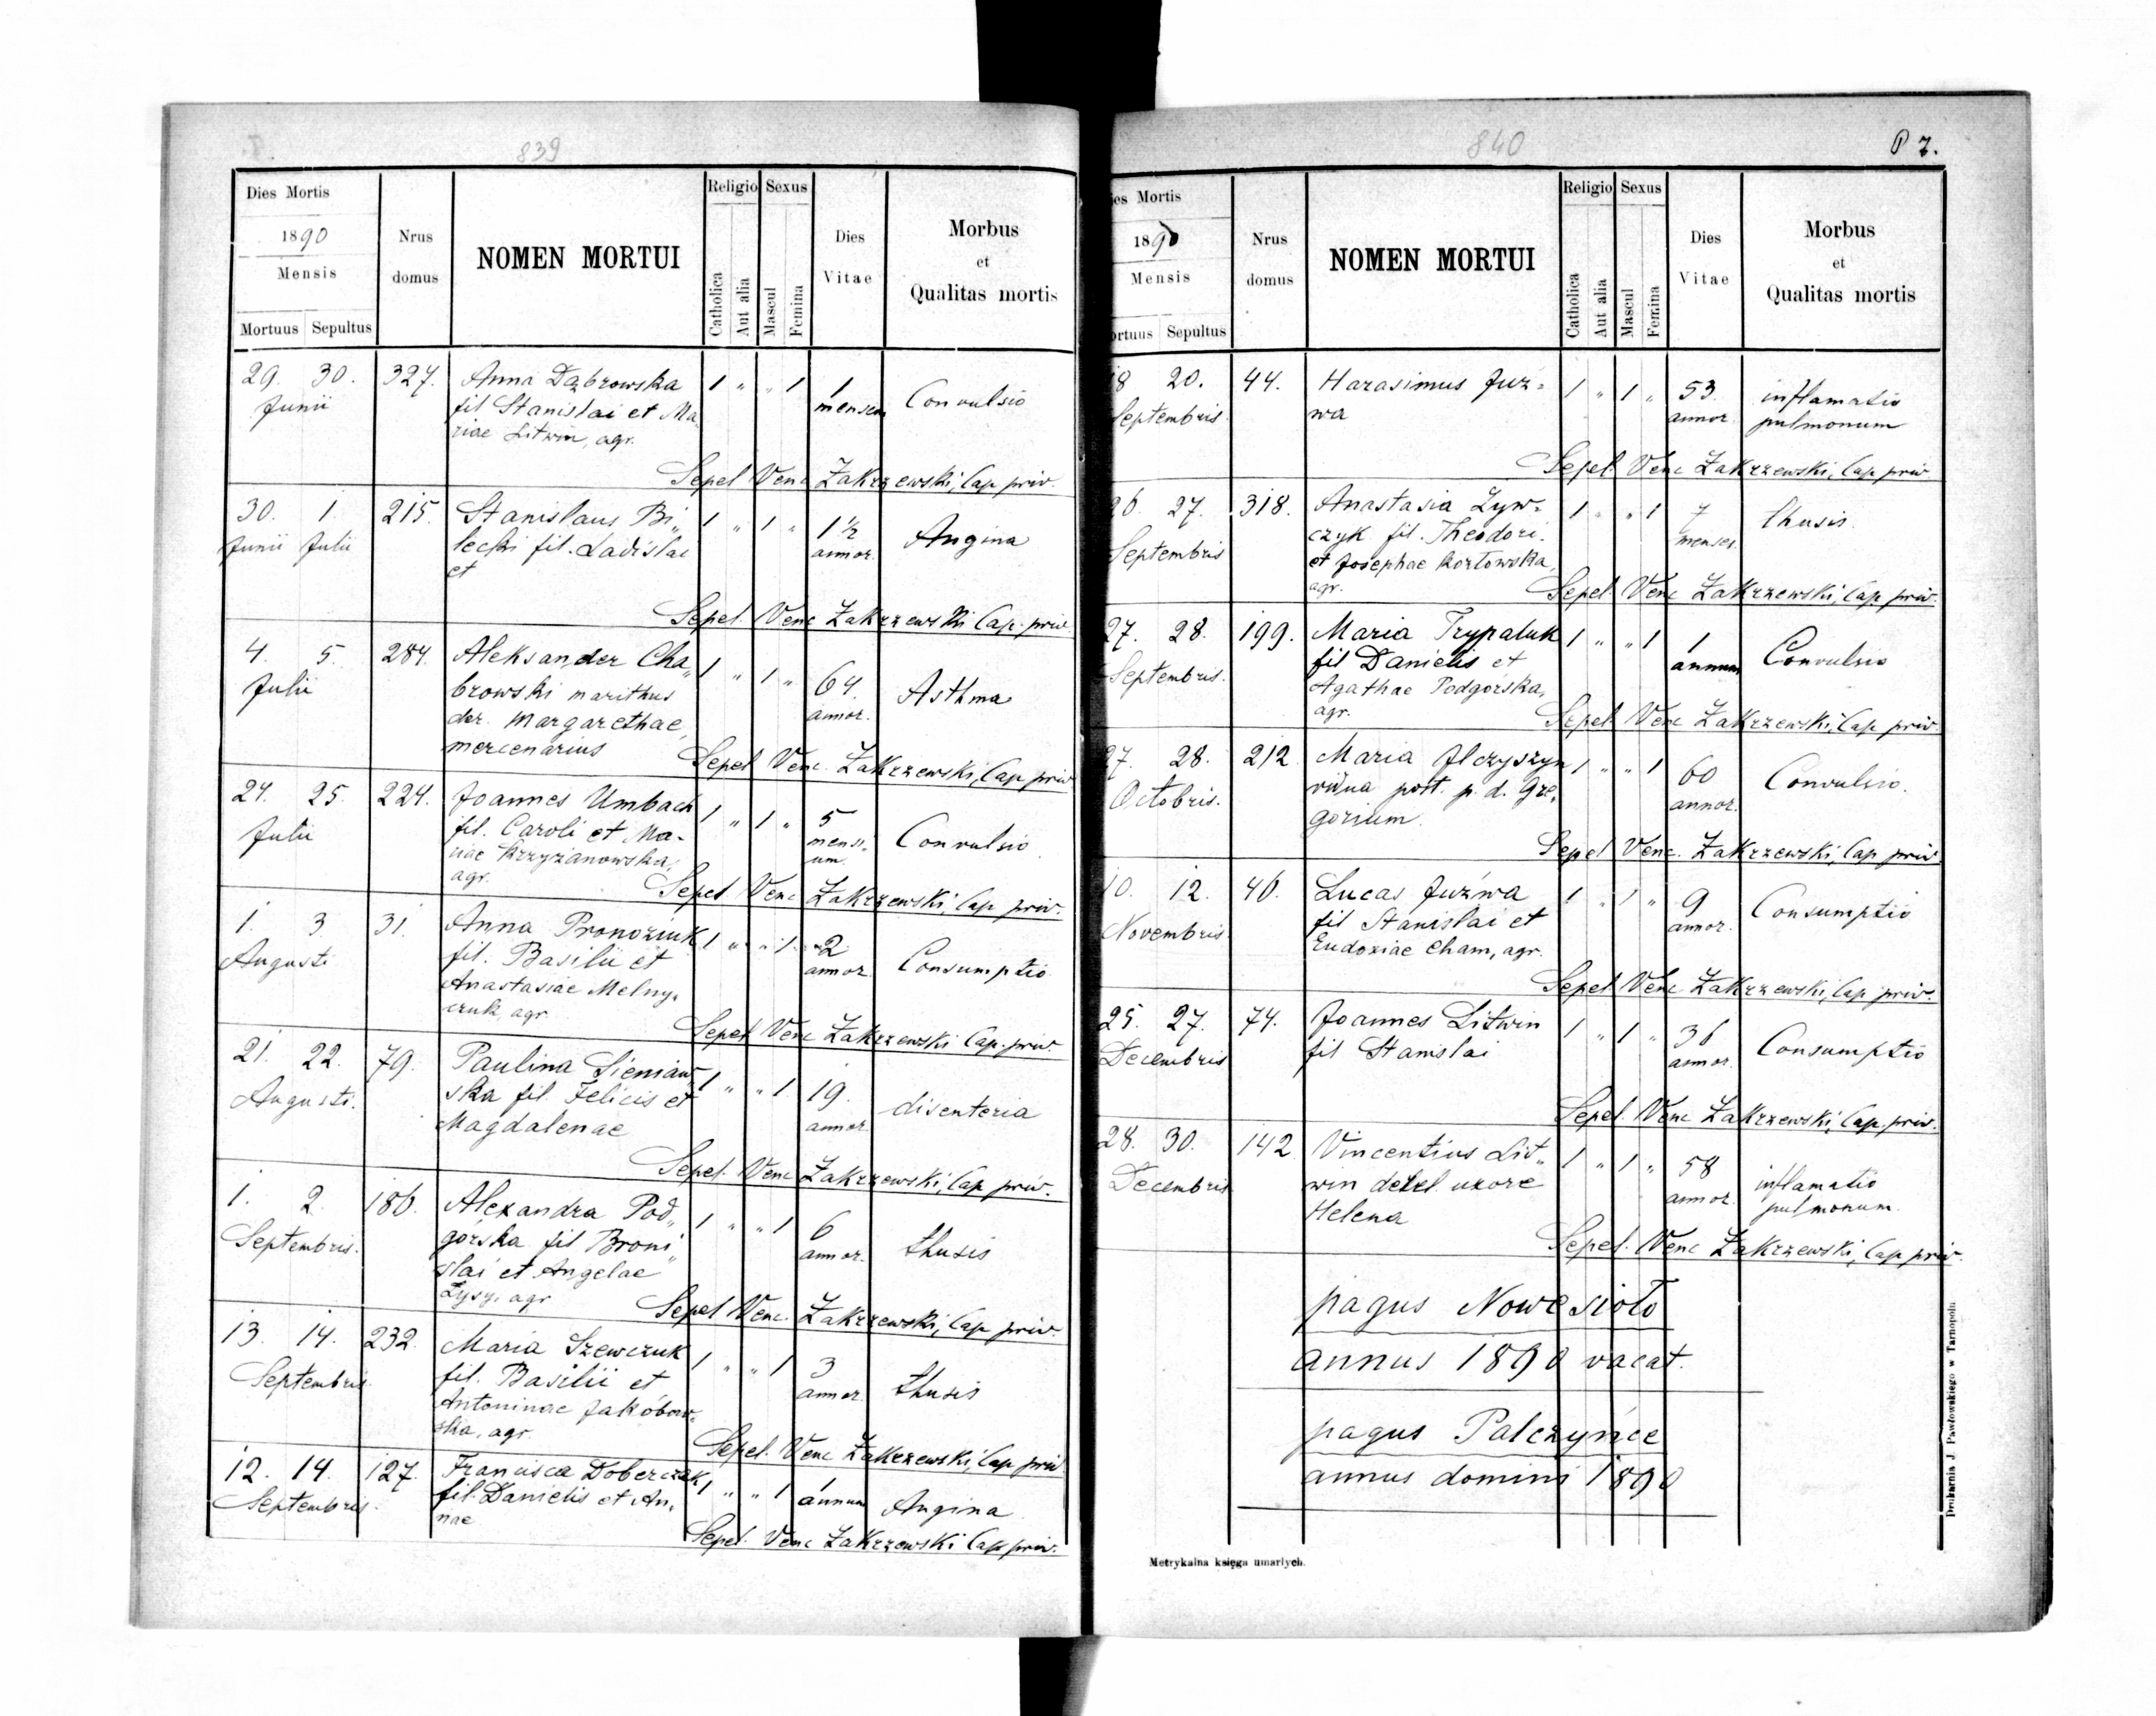 839
Dies Mortis
1890
Mensis
Mortuus Sepultus
Nrus
domus
NOMEN MORTUI
Religio
Catholica
Aut alia
Sexus
Mascul
Femina
Dies
Vitae
Morbus
et
Qualitas mortis
29. 30. 327. Anna Dąbrowska 1 " " 1 1 Convulsio
Junii fil Stanislai et Ma, mensem
riae Litwin, agr.
Sepel Venc Zakrzewski, Cap priv.
30. 1. 215. Stanislaus Bi„ 1 " 1 " 1 1/2 Angina
Junii Julii lecki fil. Ladislai annor.
et
Sepel. Venc Zakrzewski Cap. priv.
4. 5. 284. Aleksander Cha„ 1 " 1 " 64. Asthma
Julii browski marithus annor.
der. Margarethae,
mercenarius
Sepel Venc. Zakrzewski, Cap priv
24. 25. 224. Joannes Umbach 1 " 1 " 5 Convulsio
Julii fil. Caroli et Ma- mensi-
riae Krzyżanowska, um.
agr.
Sepel Venc Zakrzewski, Cap priv.
1. 3. 31. Anna Pronoziuk 1 " " 1 2 Consumptio
Augusti fil. Basilii et annor
Anastasiae Melny,
czuk, agr
Sepel Venc Zakrzewski Cap. priv.
21. 22. 79. Paulina Sieniaw, 1 " " 1 19. disenteria
Augusti. ska fil. Felicis et annor
Magdalenae
Sepel. Venc Zakrzewski, Cap priv.
1. 2. 186. Alexandra Pod„ 1 " " 1 6 thusis
Septembris. górska fil Broni„ annor.
slai et Angelae
Łysy, agr
Sepel Venc. Zakrzewski, Cap priv.
13. 14. 232. Maria Szewczuk 1 " " 1 3 thusis
Septembris. fil. Basilii et annor
Antoninae Jakóbow-
ska, agr.
Sepel. Venc Zakrzewski, Cap priv
12. 14. 127. Francisca Doberczak 1 " " 1 1 Angina
Septembris. fil. Danielis et An, annum
nae
Sepel. Venc Zakrzewski Cap priv.
840
7.
ies Mortis
1890
Mensis
ortuus Sepultus
Nrus
domus
NOMEN MORTUI
Religio
Catholica
Aut alia
Sexus
Mascul
Femina
Dies
Vitae
Morbus
et
Qualitas mortis
18 20. 44. Harasimus Juz- 1 " 1 " 53. inflamatio
Septembris. wa annor pulmonum
Sepel. Venc Zakrzewski, Cap priv
26. 27. 318. Anastasia Zyw- 1 " " 1 7 thusis.
Septembris czyk fil. Theodori. menses.
et Josephae Kozłowska,
agr.
Sepel. Venc Zakrzewski, Cap. priv.
27. 28. 199. Maria Trypaluk 1 " " 1 1 Convulsio
Septembris. fil Danielis et annum
Agathae Podgórska,
agr.
Sepel. Venc Zakrzewski, Cap priv.
27. 28. 212 Maria Ilczyszyn 1 " " 1 60 Convulsio.
Octobris. vidua post. p. d. Gre, annor.
gorium.
Sepel Venc. Zakrzewski, Cap priv
10. 12. 46. Lucas Juźwa 1 " 1 " 9 Consumptio
Novembris. fil Stanislai et annor.
Eudoxiae Cham, agr.
Sepel Venc Zakrzewski, Cap priv.
25. 27. 74. Joannes Litwin 1 " 1 " 36 Consumptio
Decembris fil Stanislai annor
Sepel Venc Zakrzewski, Cap. priv.
28. 30. 142. Vincentius Lit„ 1 " 1 " 58 inflamatio
Decembris win derel. uxore annor. pulmonum.
Helena
Sepel. Venc Zakrzewski, Cap priv.
pagus Nowesioło
annus 1890 vacat.
pagus Palczyńce
annus domini 1890
Metrykalna księga umarłych.
Drukarnia J. Pawłowskiego w Tarnopolu